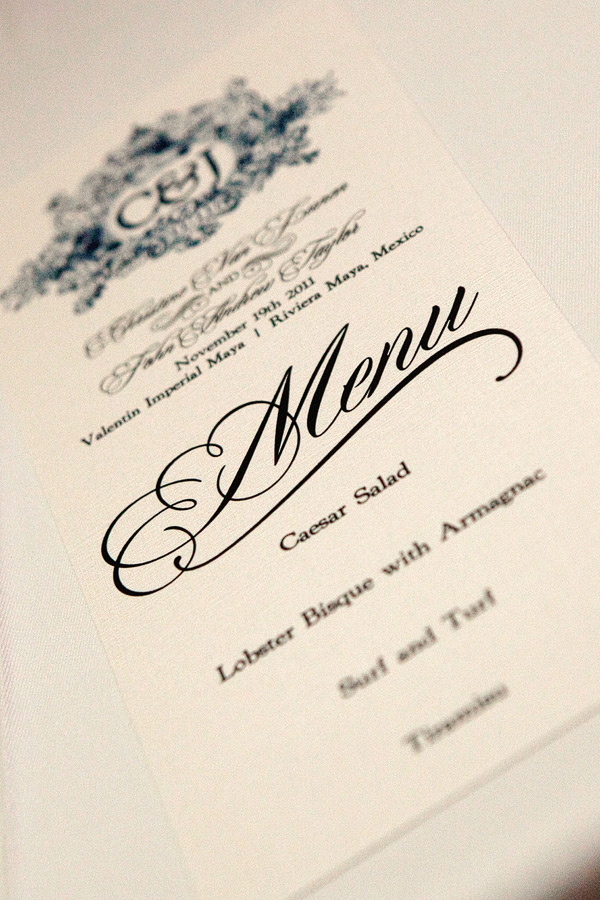 C&J
Christine Van
AND
John Andrew Taylor
November 19th 2011
Valentin Imperial Maya | Riviera Maya, Mexico
Menu
Caesar Salad
Lobster Bisque with Armagnac
Surf and Turf
Tiramisu